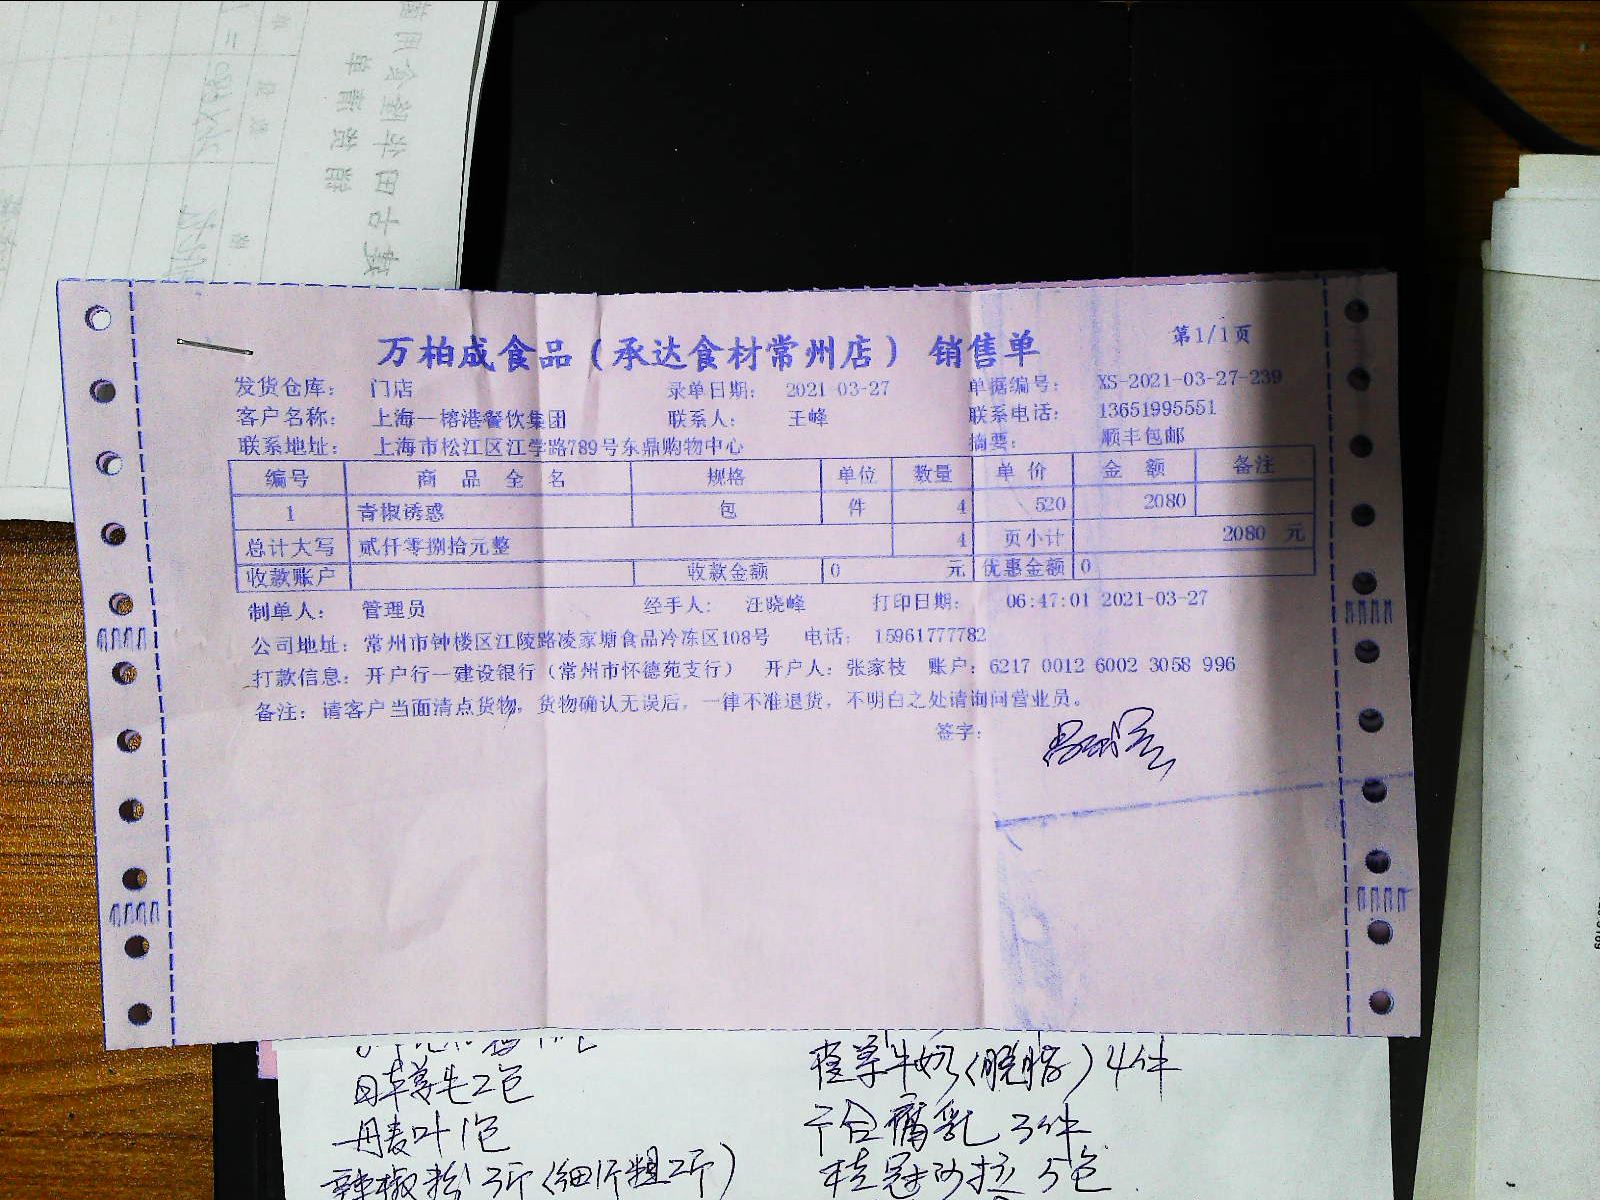 万柏成食品（承达食材常州店） 销售单
第1/1页
发货仓库： 门店 录单日期： 2021-03-27 单据编号： XS-2021-03-27-239
客户名称： 上海一榕港餐饮集团 联系人： 王峰 联系电话： 13651995551
联系地址： 上海市松江区江学路789号东鼎购物中心 摘要： 顺丰包邮
编号 商品全名 规格 单位 数量 单价 金额 备注
1 青椒诱惑 包 件 4 520 2080
总计大写 贰仟零捌拾元整 4 页小计 2080 元
收款账户 收款金额 0 元 优惠金额 0
制单人： 管理员 经手人： 汪晓峰 打印日期： 06:47:01 2021-03-27
公司地址：常州市钟楼区江陵路凌家塘食品冷冻区108号 电话： 15961777782
打款信息：开户行一建设银行（常州市怀德苑支行） 开户人：张家枝 账户：6217 0012 6002 3058 996
备注：请客户当面清点货物，货物确认无误后，一律不准退货，不明白之处请询问营业员。
签字：
牛奶（脱脂）4件
2包
腐乳 3件
叶1包
5包
辣椒粉3斤（细1斤粗2斤）